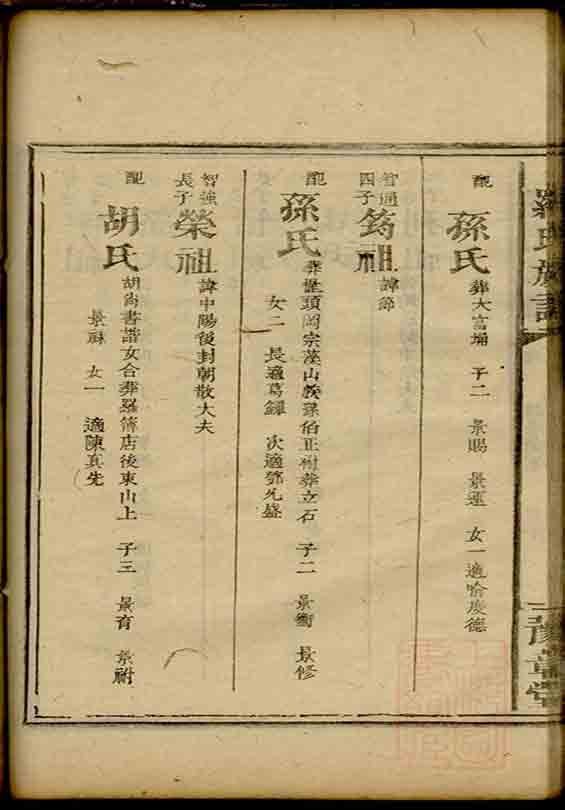 羅氏族譜
豫章堂
配 孫氏 葬大富埇 子二 景賜 景運 女一適喻度德
智通四子 筠祖 諱節
配 孫氏 葬 頭岡宗漢山 孫伯正祔葬立石 子二 景衡 景修
女二 長適葛鐸 次適鄧允盛
智強長子 榮祖 諱中陽後封朝散大夫
配 胡氏 胡尚書諧女合葬羅籌店後東山上 子三 景育 景祔
景祿 女一 適陳真先